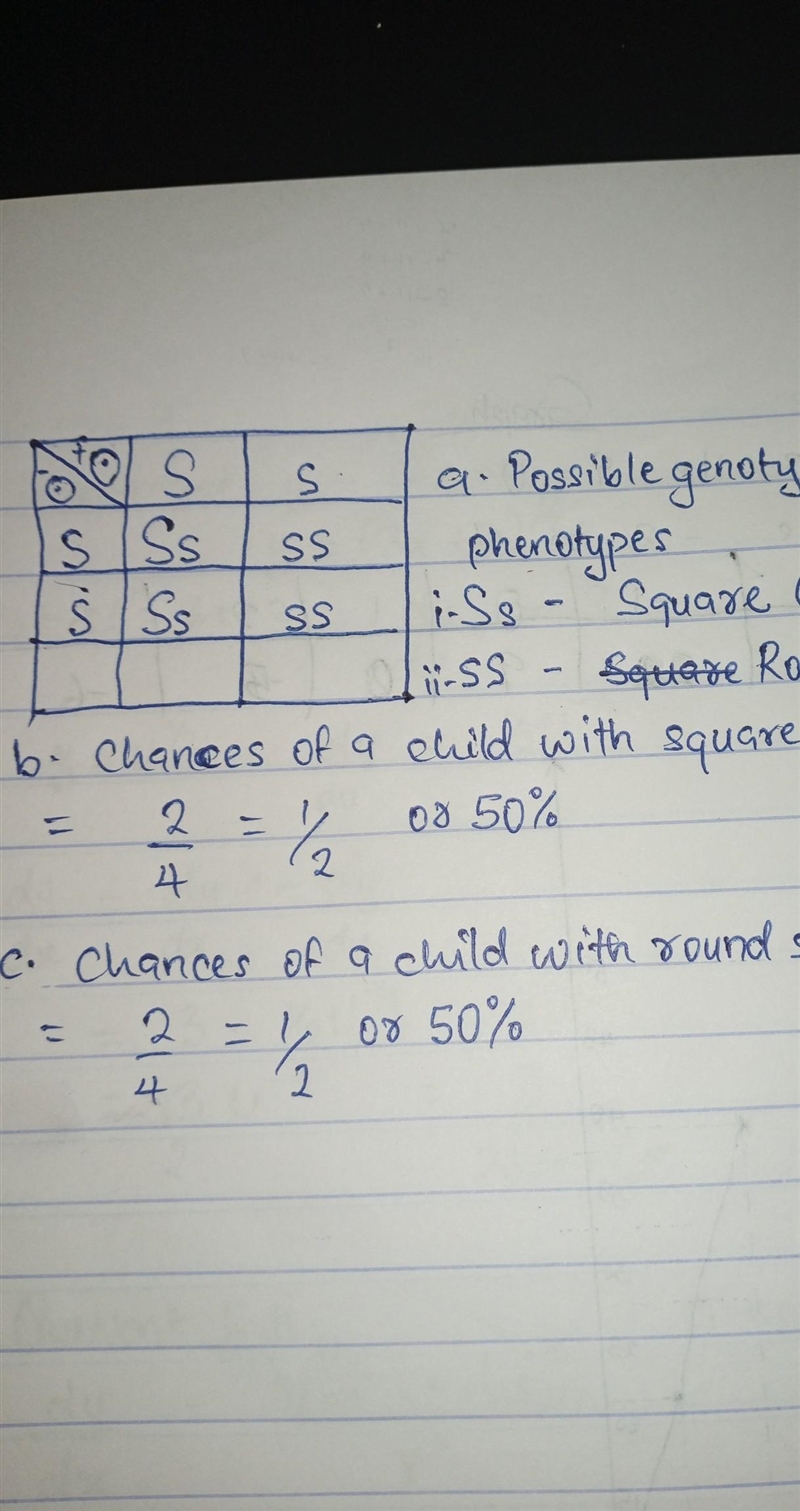 + S s
- 
s Ss ss
s Ss ss
a. Possible genoty
phenotypes
i- Ss - Square
ii- ss - Square Ro
b. Chances of a child with square
= 2/4 = 1/2 or 50%
c. Chances of a child with round s
= 2/4 = 1/2 or 50%